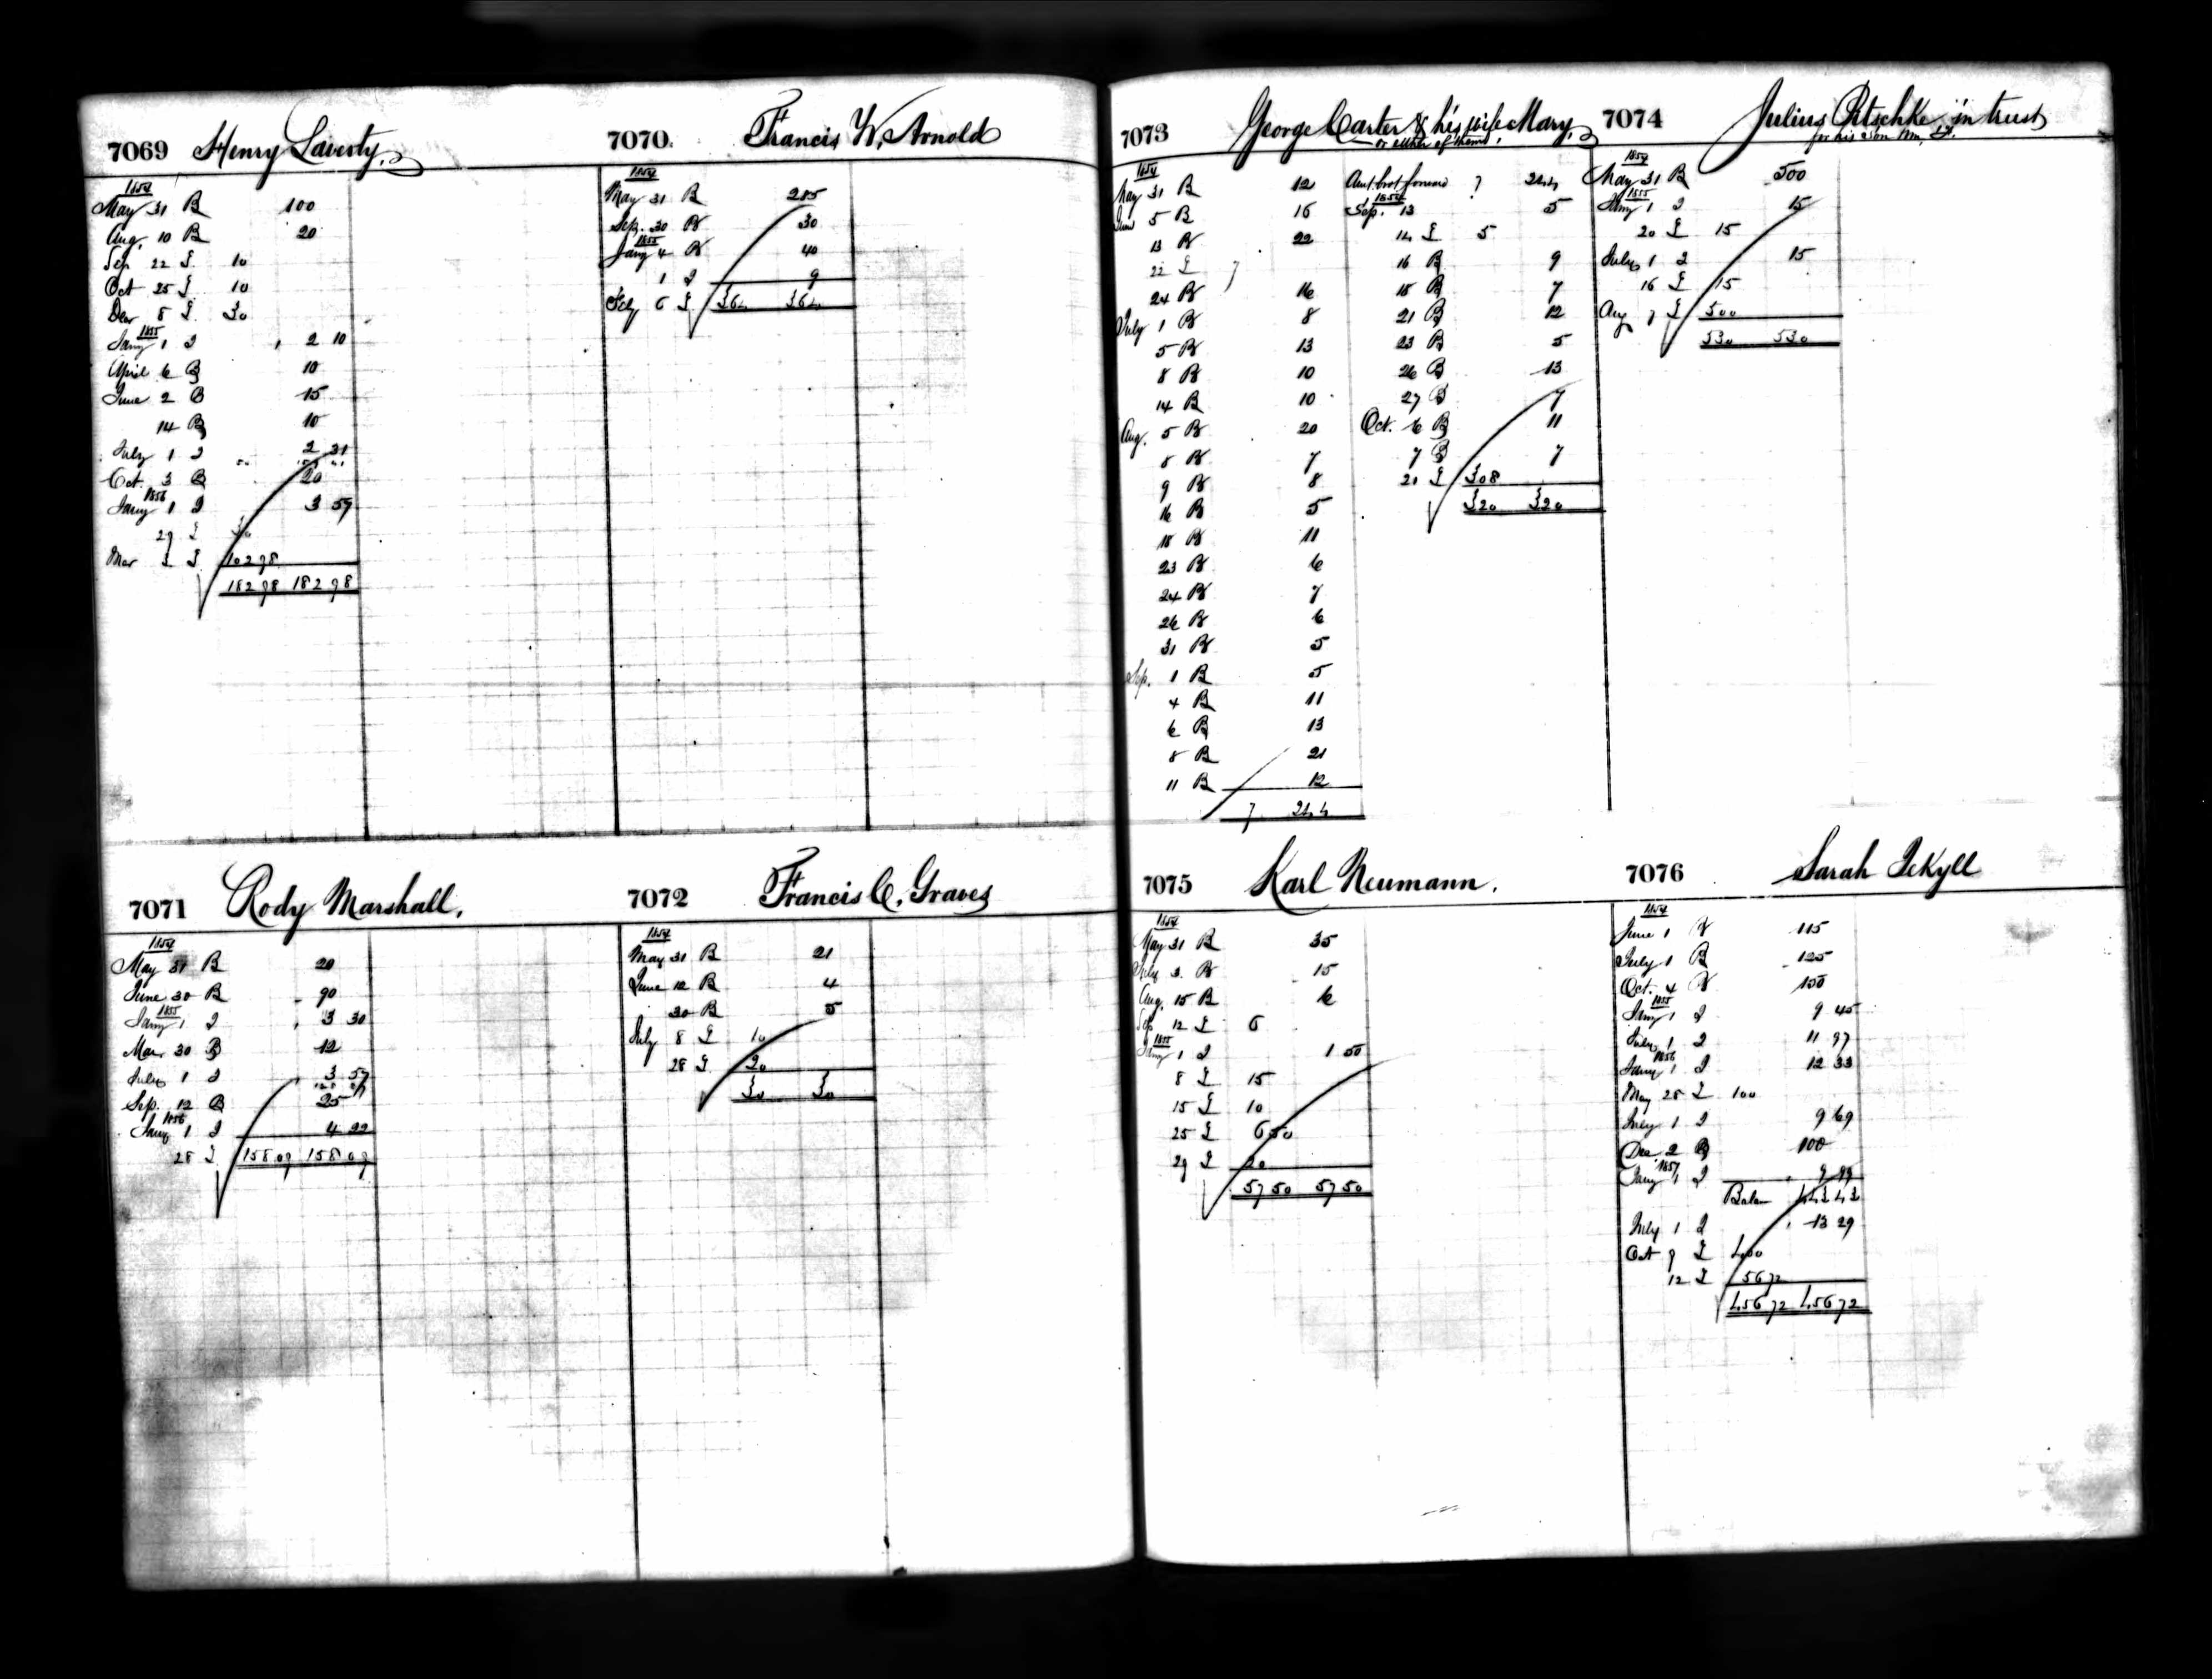 7069 Henry Laverty.
1854
May 31 B 100
Aug. 10 B 20
Sep 22 £ 10
Oct 25 £ 10
Decr 8 £ 30
1855
Jany 1 I 2 10
April 6 B 10
June 2 B 15
14 B 10
July 1 I 2 21
Oct. 3 B 20
1856
Jany 1 I 3 59
29 £ 30
Mar 3 £ 102 98
182 98 182 98
7070. Francis W. Arnold
1854
May 31 B 285
Sep. 30 B 30
1855
Jany 4 B 40
1 I 9
July 6 £ 364 364
7071 Rody Marshall.
1854
May 31 B 20
June 30 B 90
1855
Jany 1 I 3 30
Mar. 30 B 12
July 1 I 3 57
Sep. 12 B 25
1856
Jany 1 I 4 22
28 £ 158 09 158 09
7072 Francis C. Graves
1854
May 31 B 21
June 12 B 4
30 B 5
July 8 £ 10
28 £ 20
30 30
7073 George Carter & his wife Mary,
or either of them.
1854
May 31 B 12
June 5 B 16
13 B 22
22 £ 7
24 B 16
July 1 B 8
5 B 13
8 B 10
14 B 10
Aug. 5 B 20
8 B 7
9 B 8
16 B 5
18 B 11
23 B 6
24 B 7
26 B 6
31 B 5
Sep. 1 B 5
4 B 11
6 B 13
8 B 21
11 B 12
7 244
Amt. brot forward 7 244
1854
Sep. 13 5
14 £ 5
16 B 9
18 B 7
21 B 12
23 B 5
26 B 13
27 B 7
Oct. 6 B 11
7 B 7
21 £ 308
320 320
7074 Julius Pitschke in trust
for his son Wm.
1854
May 31 B 500
1855
Jany 1 I 15
20 £ 15
July 1 I 15
16 £ 15
Aug 7 £ 500
530 530
7075 Karl Neumann.
1854
May 31 B 35
July 3 B 15
Aug. 15 B 6
Sep 12 £ 6
1855
Jany 1 I 1 50
8 £ 15
15 £ 10
25 £ 6 50
29 £ 20
57 50 57 50
7076 Sarah Jekyll
1854
June 1 B 115
July 1 B 125
Oct. 4 B 150
1855
Jany 1 I 9 45
July 1 I 11 97
1856
Jany 1 I 12 33
May 28 £ 100
July 1 I 9 69
Dec 2 B 100
1857
Jany 1 I 9 99
Balan 443 43
July 1 I 13 29
Oct 9 £ 400
12 £ 56 72
456 72 456 72